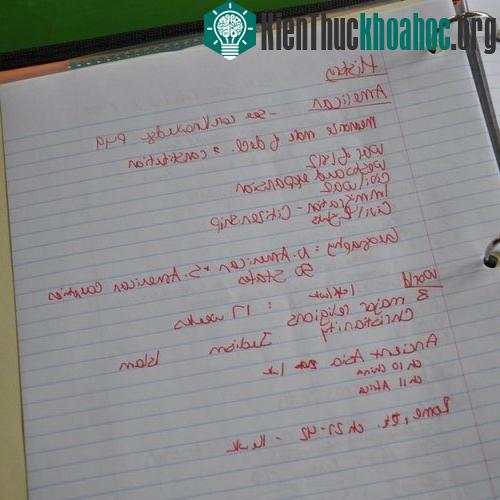 KienThuckhoahoc.org
History
American - see
Memorize decl. & constitution
War of 1812
Westward expansion
Civil War
Immigration - Citizenship
Civil Rights
Geography: N. American + S. American Countries
50 States
World : 17 weeks
3 major religions
Christianity Judism Islam
Ancient Asia 1 wk
Ch 10 China
Ch 11 Africa
Rome, ch 27-42 - wk